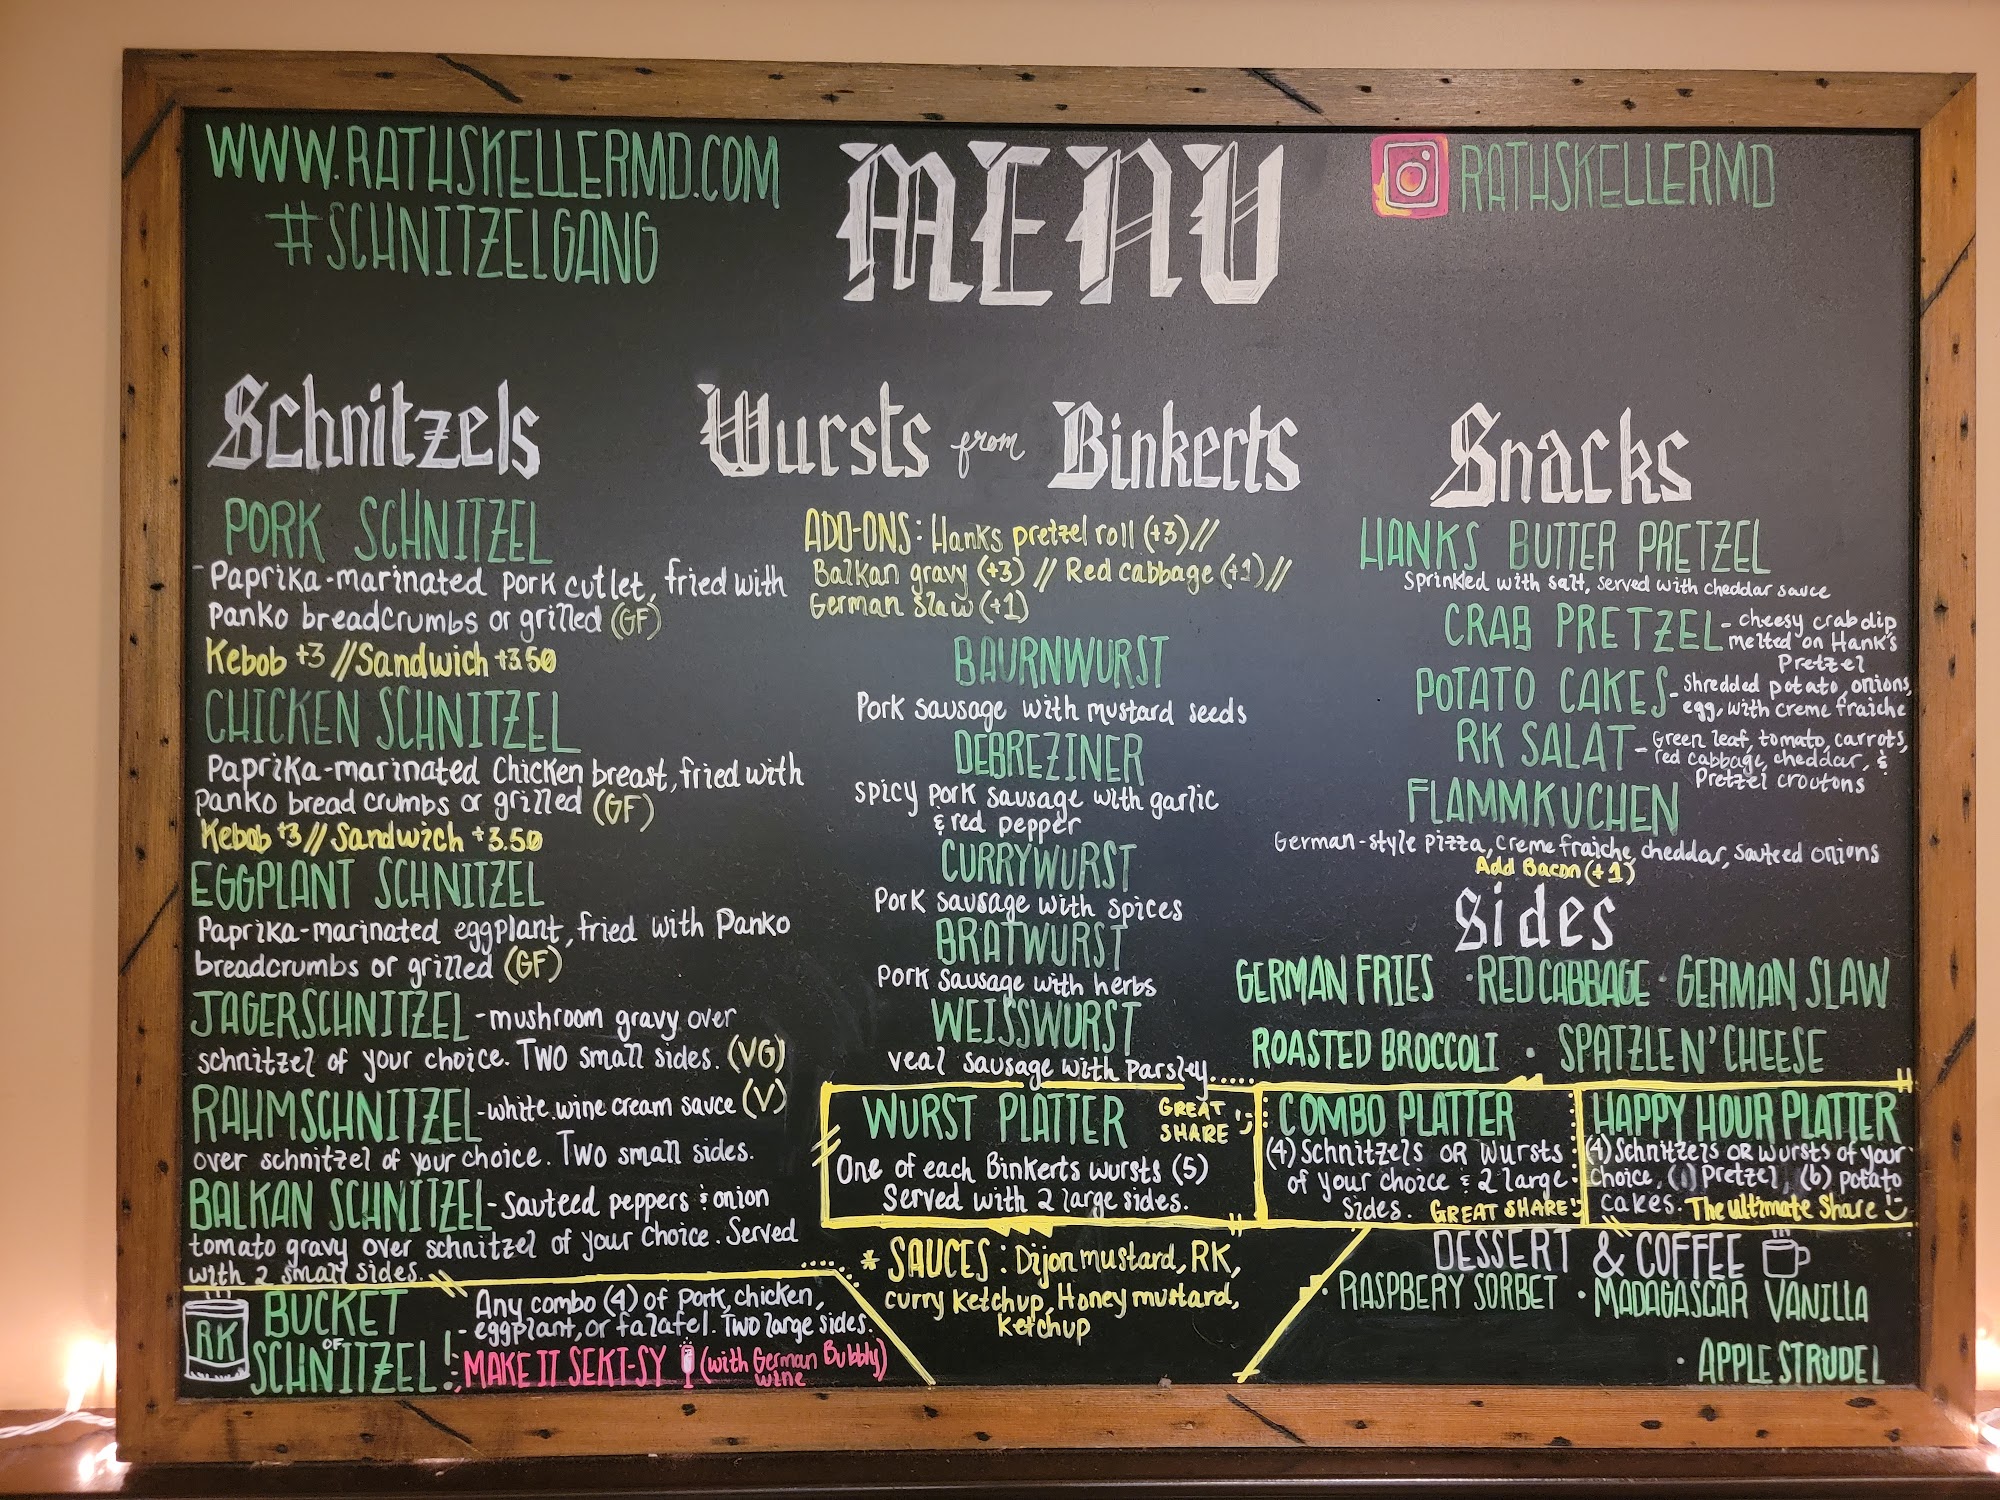 WWW.RATHSKELLERMD.COM
#SCHNITZELGANG
MENU
RATHSKELLERMD
Schnitzels
PORK SCHNITZEL
-Paprika-marinated pork cutlet, fried with
Panko breadcrumbs or grilled (GF)
Kebob +3 // Sandwich +3.50
CHICKEN SCHNITZEL
Paprika-marinated Chicken breast, fried with
panko bread crumbs or grilled (GF)
Kebob +3 // Sandwich +3.50
EGGPLANT SCHNITZEL
Paprika-marinated eggplant, fried with Panko
breadcrumbs or grilled (GF)
JAGERSCHNITZEL -mushroom gravy over
schnitzel of your choice. Two small sides. (VG)
RAHMSCHNITZEL -white wine cream sauce (V)
over schnitzel of your choice. Two small sides.
BALKAN SCHNITZEL -Sauteed peppers & onion
tomato gravy over schnitzel of your choice. Served
with 2 small sides.
RK
BUCKET
OF
SCHNITZEL!
- Any combo (4) of pork, chicken,
- eggplant, or falafel. Two large sides.
MAKE IT SEKT-SY (with German Bubbly)
wine
Wursts from Binkerts
ADD-ONS: Hanks pretzel roll (+3) //
Balkan gravy (+3) // Red cabbage (+1) //
German slaw (+1)
BAURNWURST
Pork sausage with mustard seeds
DEBREZINER
spicy pork sausage with garlic
& red pepper
CURRYWURST
Pork sausage with spices
BRATWURST
Pork sausage with herbs
WEISSWURST
veal sausage with Parsley.....
WURST PLATTER
GREAT
SHARE :)
One of each Binkerts wursts (5)
Served with 2 large sides.
* SAUCES: Dijon mustard, RK,
curry ketchup, Honey mustard,
ketchup
Snacks
HANKS BUTTER PRETZEL
sprinkled with salt, served with cheddar sauce
CRAB PRETZEL - cheesy crab dip
melted on Hank's
Pretzel
POTATO CAKES - shredded potato, onions,
egg, with creme fraiche
RK SALAT - Green leaf, tomato, carrots,
red cabbage, cheddar, &
Pretzel croutons
FLAMMKUCHEN
German-style pizza, creme fraiche, cheddar, sauteed onions
Add Bacon (+1)
Sides
GERMAN FRIES · RED CABBAGE · GERMAN SLAW
ROASTED BROCCOLI · SPATZLE N' CHEESE
COMBO PLATTER
(4) Schnitzels OR wursts
of your choice & 2 large
sides. GREAT SHARE :)
HAPPY HOUR PLATTER
(4) Schnitzels OR wursts of your
choice, (1) Pretzel, (6) potato
cakes. The Ultimate Share :)
DESSERT & COFFEE
· RASPBERY SORBET · MADAGASCAR VANILLA
· APPLE STRUDEL